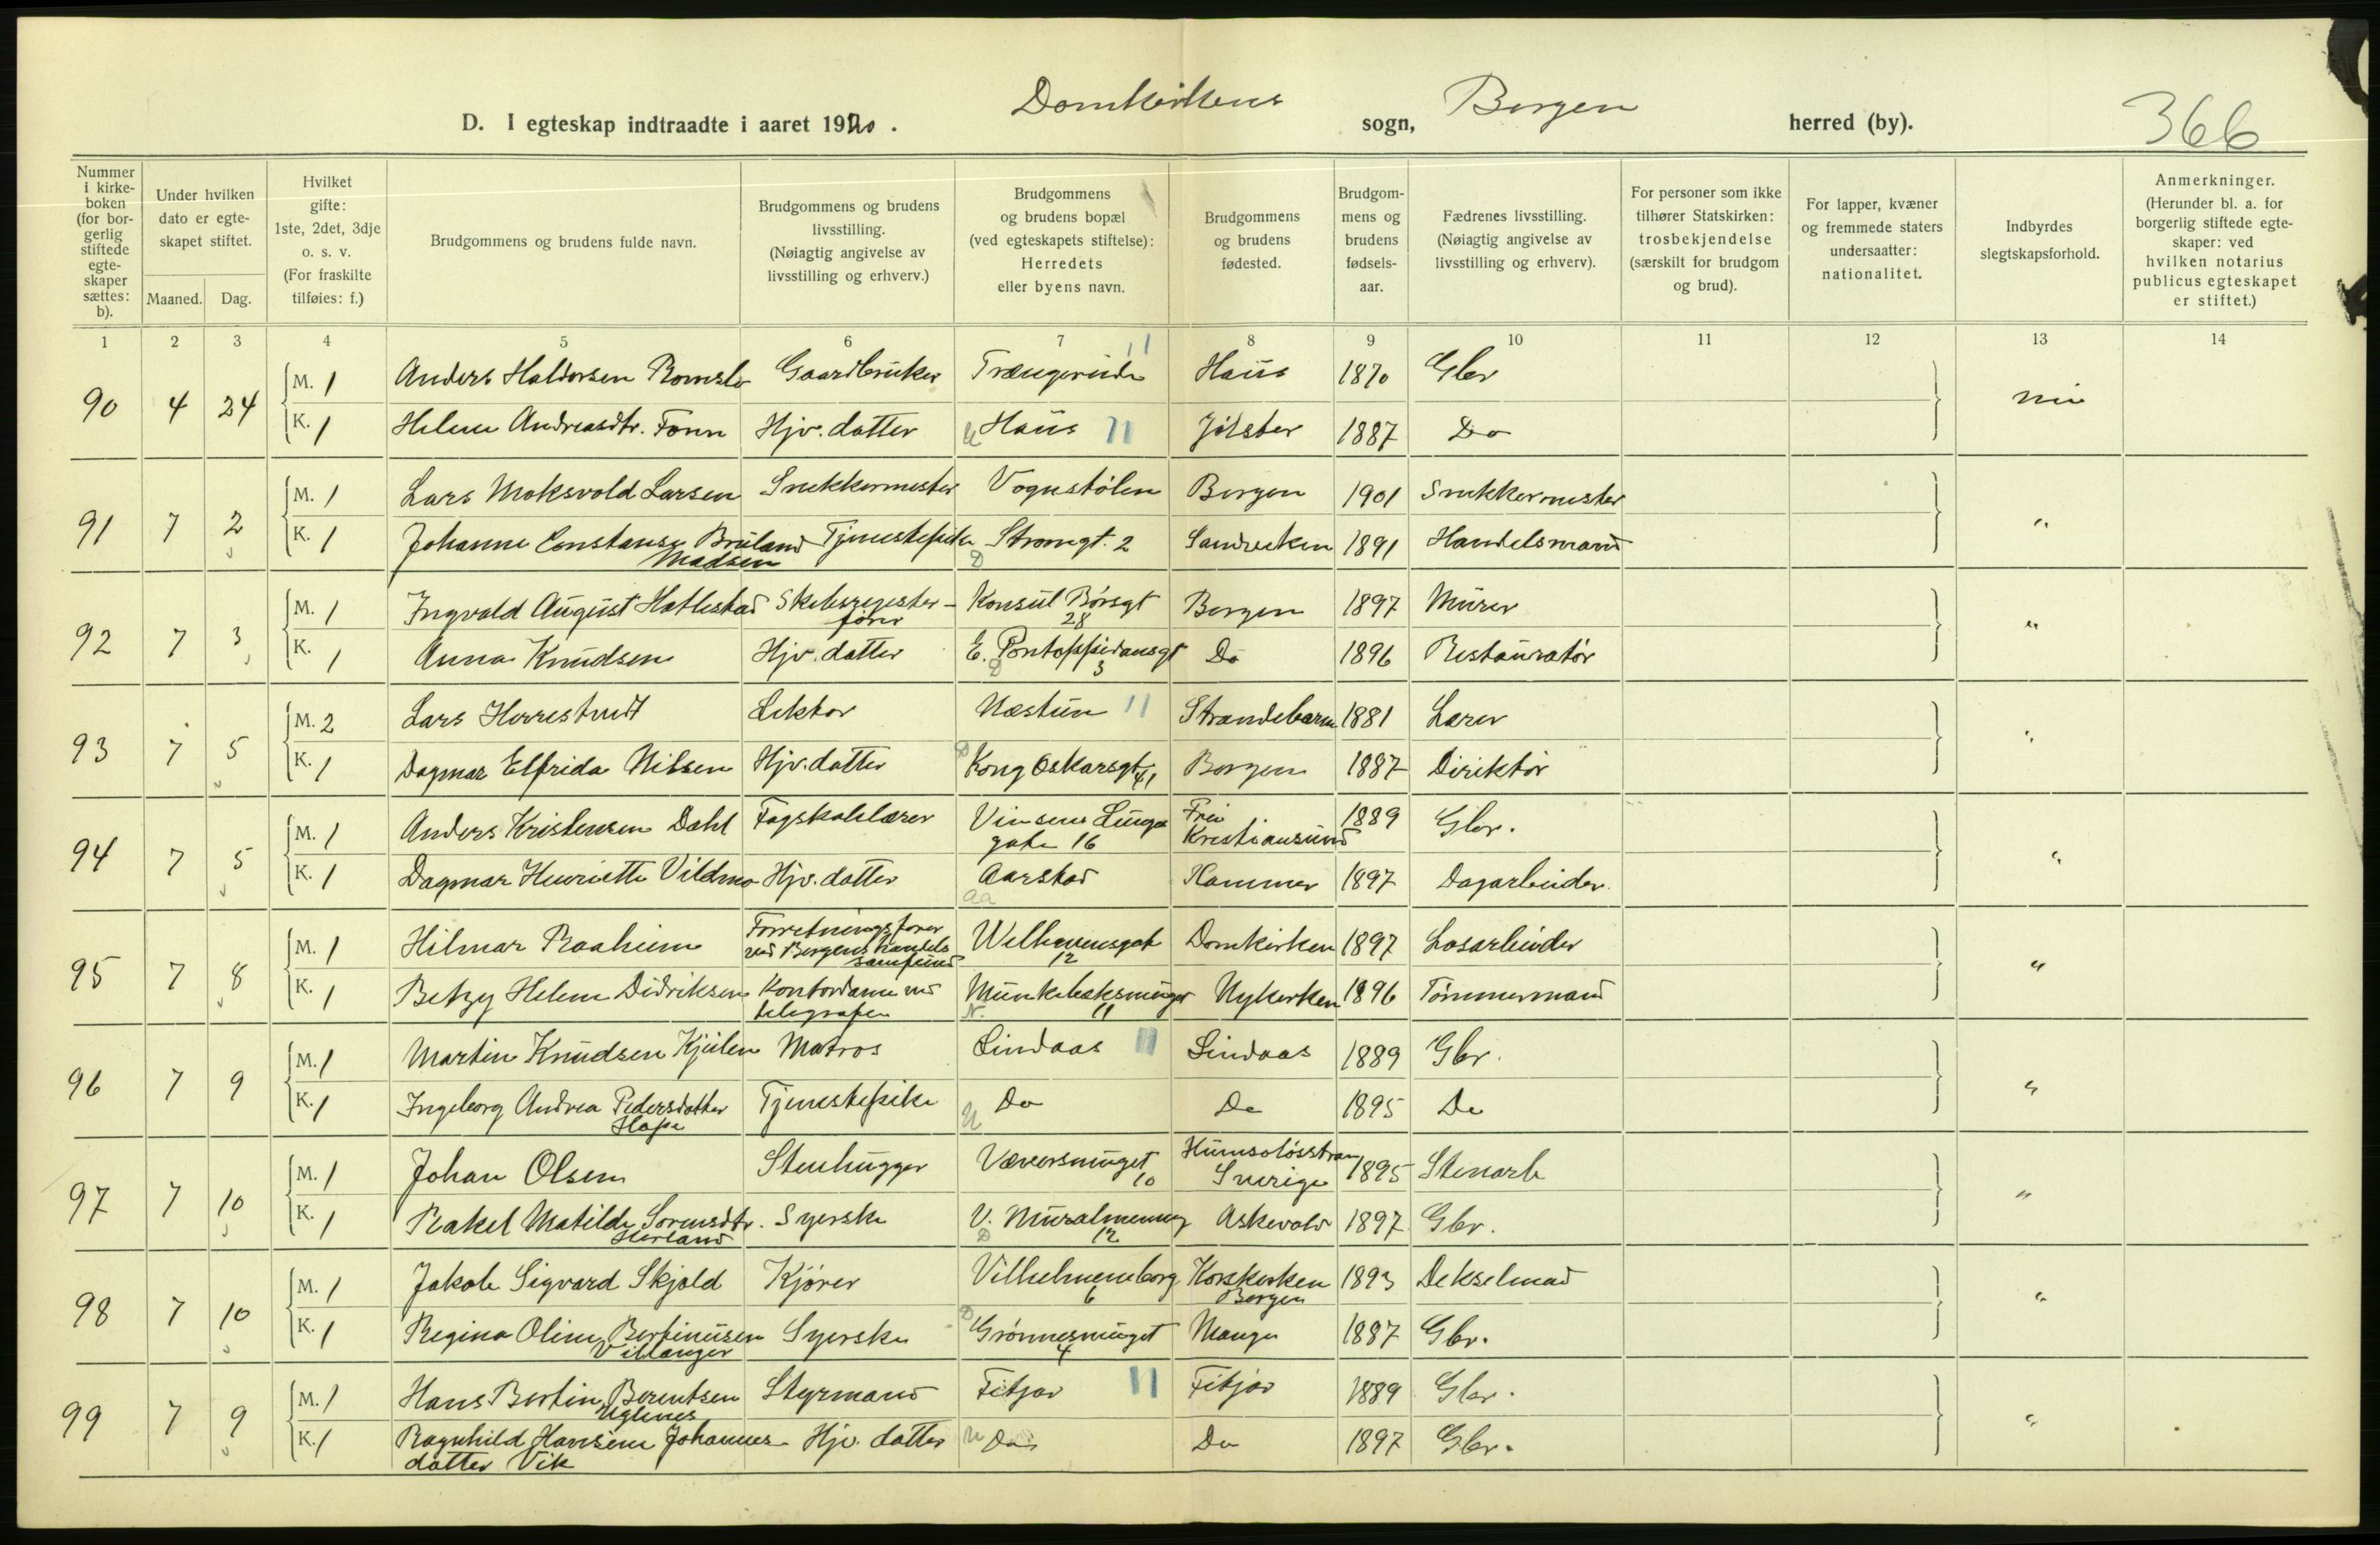 D. I egteskap indtraadte i aaret 1920. Domkirkens sogn, Bergen herred (by). 366
Nummer i kirkeboken (for borgerlig stiftede egteskaper sættes: b).
Under hvilken dato er egteskapet stiftet. Maaned. Dag.
Hvilket gifte: 1ste, 2det, 3dje o. s. v. (For fraskilte tilføies: f.)
Brudgommens og brudens fulde navn.
Brudgommens og brudens livsstilling. (Nøiagtig angivelse av livsstilling og erhverv.)
Brudgommens og brudens bopæl (ved egteskapets stiftelse): Herredets eller byens navn.
Brudgommens og brudens fødested.
Brudgommens og brudens fødselsaar.
Fædrenes livsstilling. (Nøiagtig angivelse av livsstilling og erhverv).
For personer som ikke tilhører Statskirken: trosbekjendelse (særskilt for brudgom og brud).
For lapper, kvæner og fremmede staters undersaatter: nationalitet.
Indbyrdes slegtskapsforhold.
Anmerkninger. (Herunder bl. a. for borgerlig stiftede egteskaper: ved hvilken notarius publicus egteskapet er stiftet.)
1 2 3 4 5 6 7 8 9 10 11 12 13 14
90 4 24 M. 1 Anders Haldorsen Romslo Gaardbruker Trængereide 11 Haus 1870 Gbr nei
K. 1 Helene Andreasdtr. Fonn Hjv. datter U Haus 11 Jølster 1887 Do
91 7 2 M. 1 Lars Moksvold Larsen Snekkermester Vognstølen Bergen 1901 Snekkermester "
K. 1 Johanne Constanse Bruland Madsen Tjenestepike Stromgt. 2 D Sandviken 1891 Handelsmand
92 7 3 M. 1 Ingvald August Hatlestad Skibsregisterfører Konsul Børsgt 28 Bergen 1897 Murer "
K. 1 Anna Knudsen Hjv. datter E. Pontoppidansgt 3 D Do 1896 Restauratør
93 7 5 M. 2 Lars Herrestvedt Lektor Næstun 11 Strandebarm 1881 Lærer "
K. 1 Dagmar Elfrida Nilsen Hjv. datter D Kong Oskarsgt 41 Bergen 1887 Direktør
94 7 5 M. 1 Anders Kristensen Dahl Fagskolelærer Vinsens Lunges gate 16 Frei Kristiansund 1889 Gbr. "
K. 1 Dagmar Henriette Vildmo Hjv. datter Aarstad aa Hammer 1897 Dagarbeider.
95 7 8 M. 1 Hilmar Raaheim Forretningsfører ved Bergens handels samfund Welhavensgate 12 Domkirken 1897 Losarbeider "
K. 1 Betzy Helene Didriksen Kontordame ved telegrafen Munkebæksmuget 11 N. Nykirken 1896 Tømmermand
96 7 9 M. 1 Martin Knudsen Kjeilen Matros Lindaas 11 Lindaas 1889 Gbr. "
K. 1 Ingeborg Andrea Pedersdatter Hope Tjenestepike U Do Do 1895 Do
97 7 10 M. 1 Johan Olsen Stenhugger Væversmuget 10 Sverige 1895 Stenarb "
K. 1 Rakel Matilde Sorensdtr. Herland Syerske V. Muralmenning 12 D Askevold 1897 Gbr.
98 7 10 M. 1 Jakob Sigvard Skjold Kjører Vilhelmineborg 6 Korskirken Bergen 1893 Dekselmand "
K. 1 Regina Oline Bertinusen Villanger Syerske D Grønnesmuget 4 Manger 1887 Gbr.
99 7 9 M. 1 Hans Bertin Berentsen Uglenes Styrmand Fitjar 11 Fitjar 1889 Gbr. "
K. 1 Ragnhild Hansine Johannesdatter Vik Hjv. datter U Do Do 1897 Gbr.